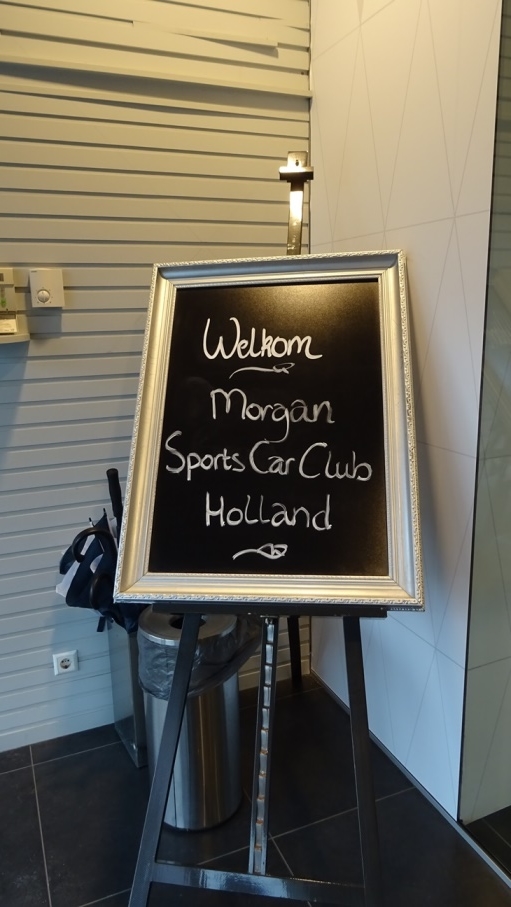 Welkom
Morgan
Sports Car Club
Holland